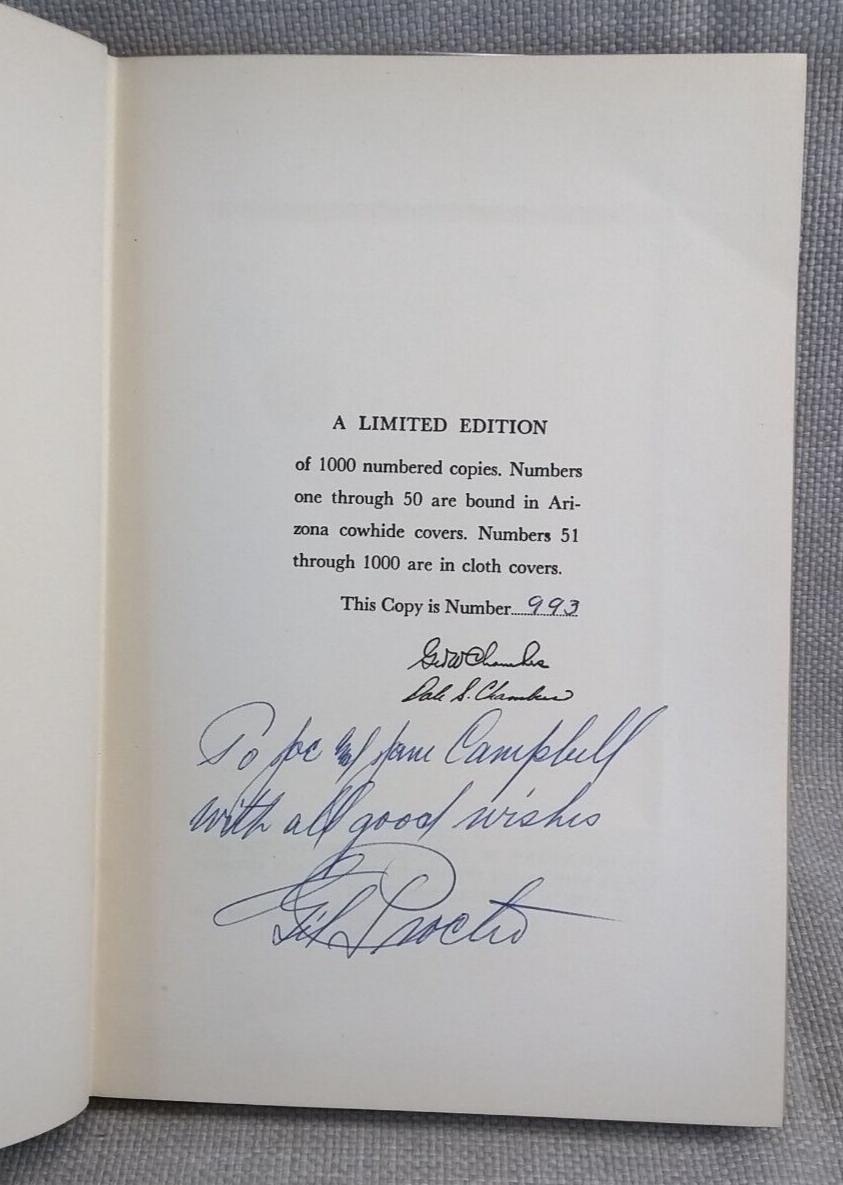 A LIMITED EDITION
of 1000 numbered copies. Numbers
one through 50 are bound in Ari-
zona cowhide covers. Numbers 51
through 1000 are in cloth covers.
This Copy is Number......993
Geo W Chambers
Dale S. Chambers
To Joe and Jane Campbell
with all good wishes
Gil Procter